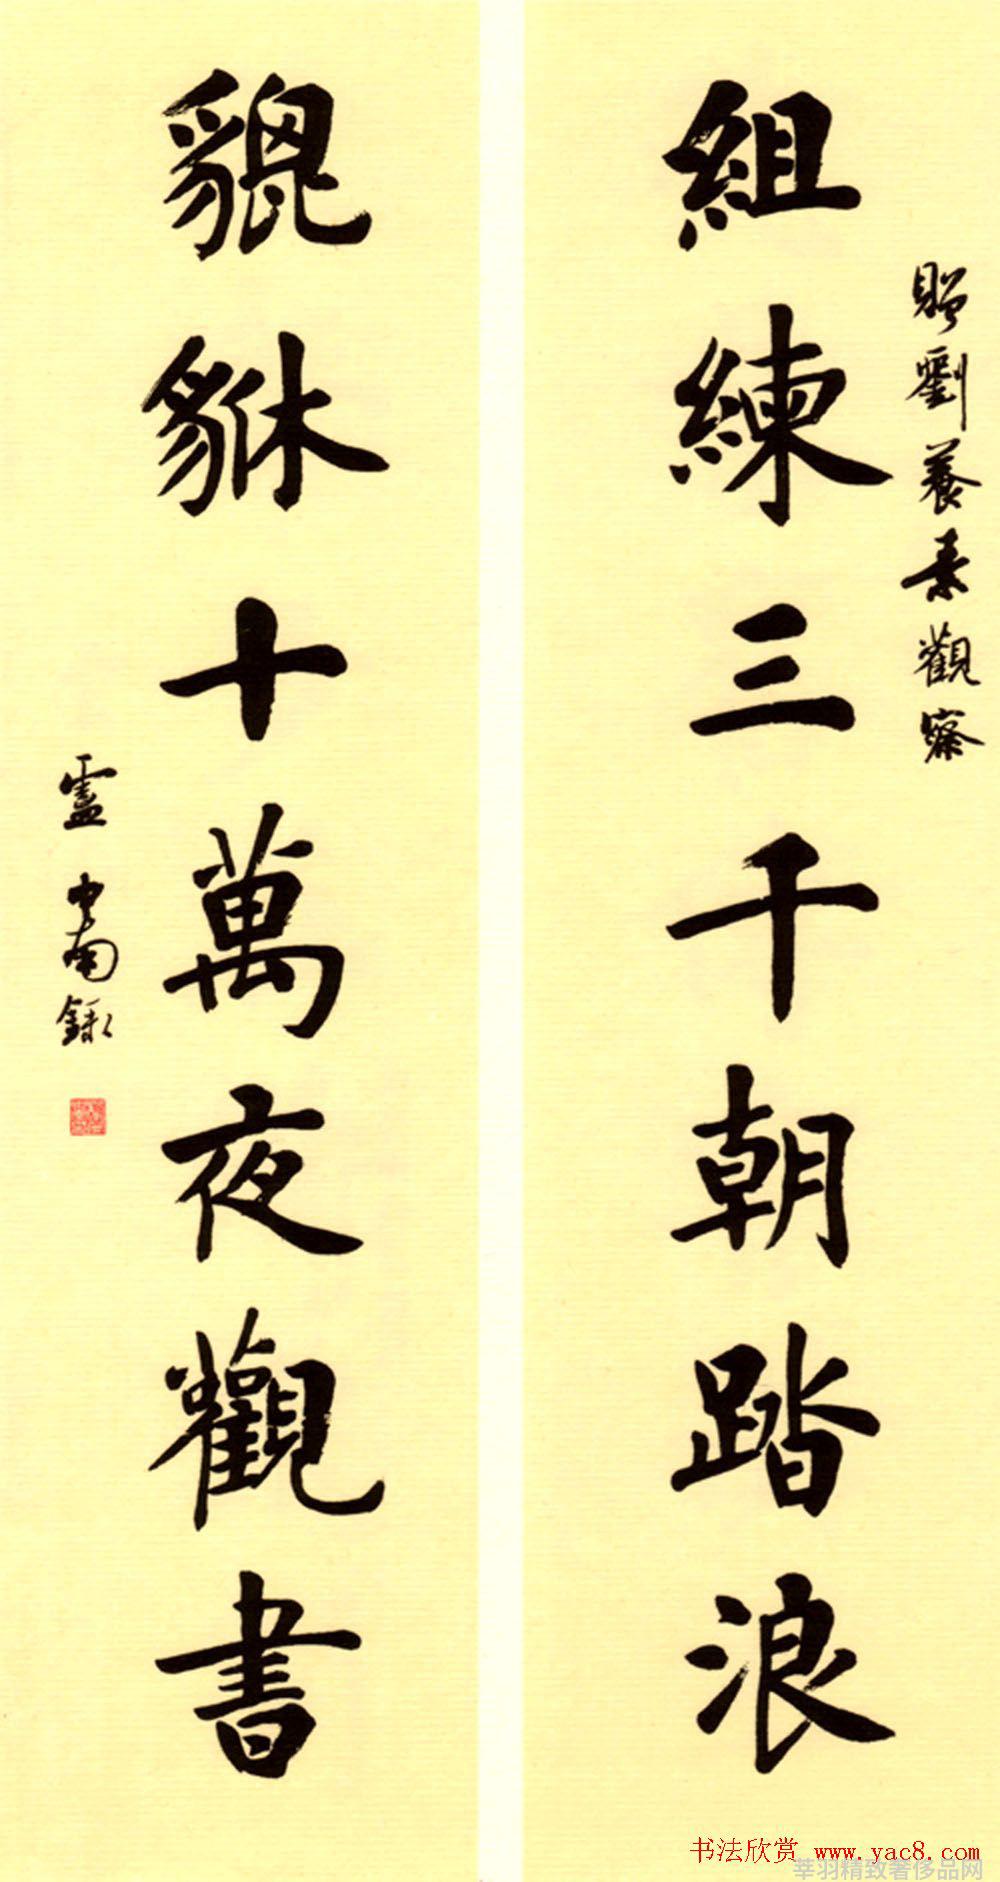 贈劉養素觀察
組練三千朝踏浪
貔貅十萬夜觀書
盧中南錄
书法欣赏 www.yac8.com
莘羽精致奢侈品网